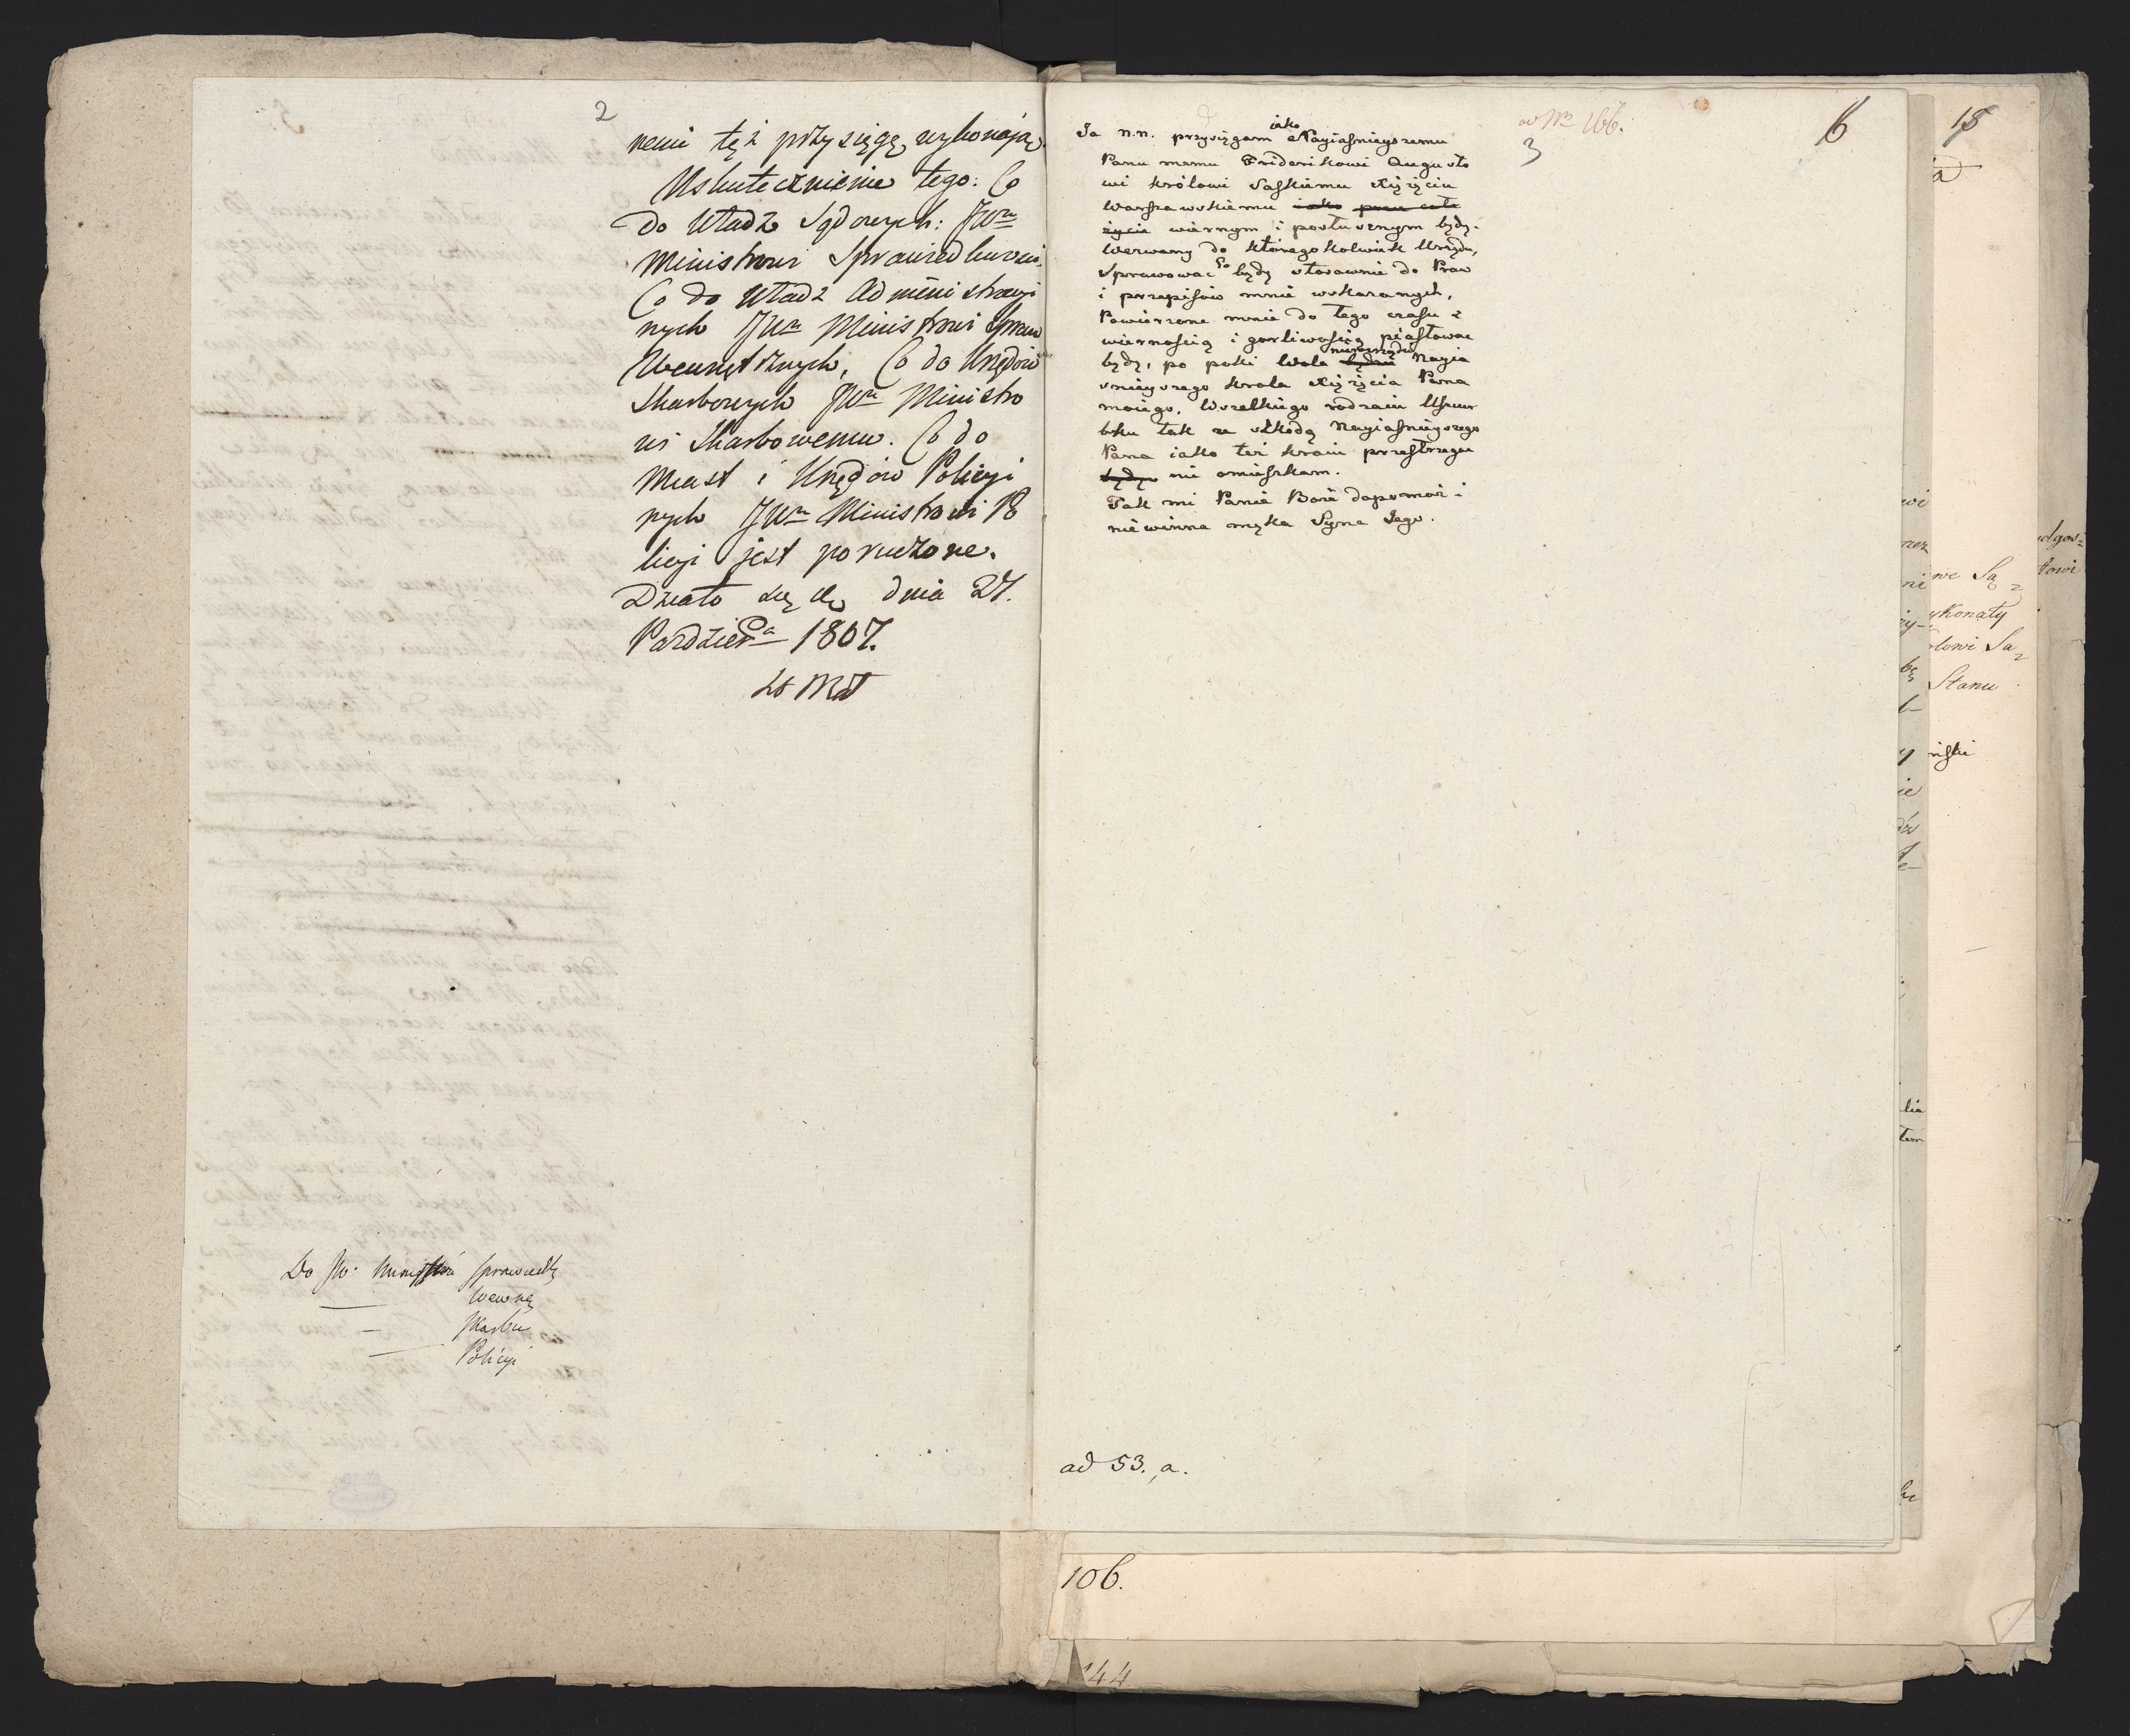 2
nemi tęż przysięgę wykonają.
Uskutecznienie tego: Co
do Władz Sądowych: JWu
Ministrowi Sprawiedliwości
Co do Władz Administracyi
nych JWu Ministrowi Spraw
Wewnętrznych, Co do Urzędów
Skarbowych JWu Ministro
wi Skarbowemu. Co do
Miast i Urzędów Policyi
nych JWu Ministrowi Po
licyi jest poruczone.
Działo się dnia 27.
Paździera 1807.
Do JW. Ministra Sprawiedli
Wewnę
Skarbu
Policyi
ad Nr 166.
3
6
Ja n.n. przysięgam iako Nayiaśnieyszemu
Panu memu Friderikowi Augusto
wi Królowi Saskiemu Xiążęciu
Warszawskiemu iako przez całe
życie wiernym i posłusznym będę.
Wezwany do któregokolwiek Urzędu,
Sprawować go będę stosownie do Praw
i przepisów mnie wskazanych,
Powierzone mnie do tego czasu z
wiernością i gorliwością piastować
będę, po poki Wola będzie Nayia
śnieyszego Krola Xiążęcia Pana
moiego. Wszelkiego rodzaiu Uszczer
bku tak na szkodę Nayiaśnieyszego
Pana iako też kraiu przestrzegać
będę nie omieszkam.
Tak mi Panie Boże dopomoż i
niewinna męka Syna Jego.
ad 53. a.
15
a
we Są
ykonały
lowi Sa
Stanu
ński
dgow
towi
106.
144